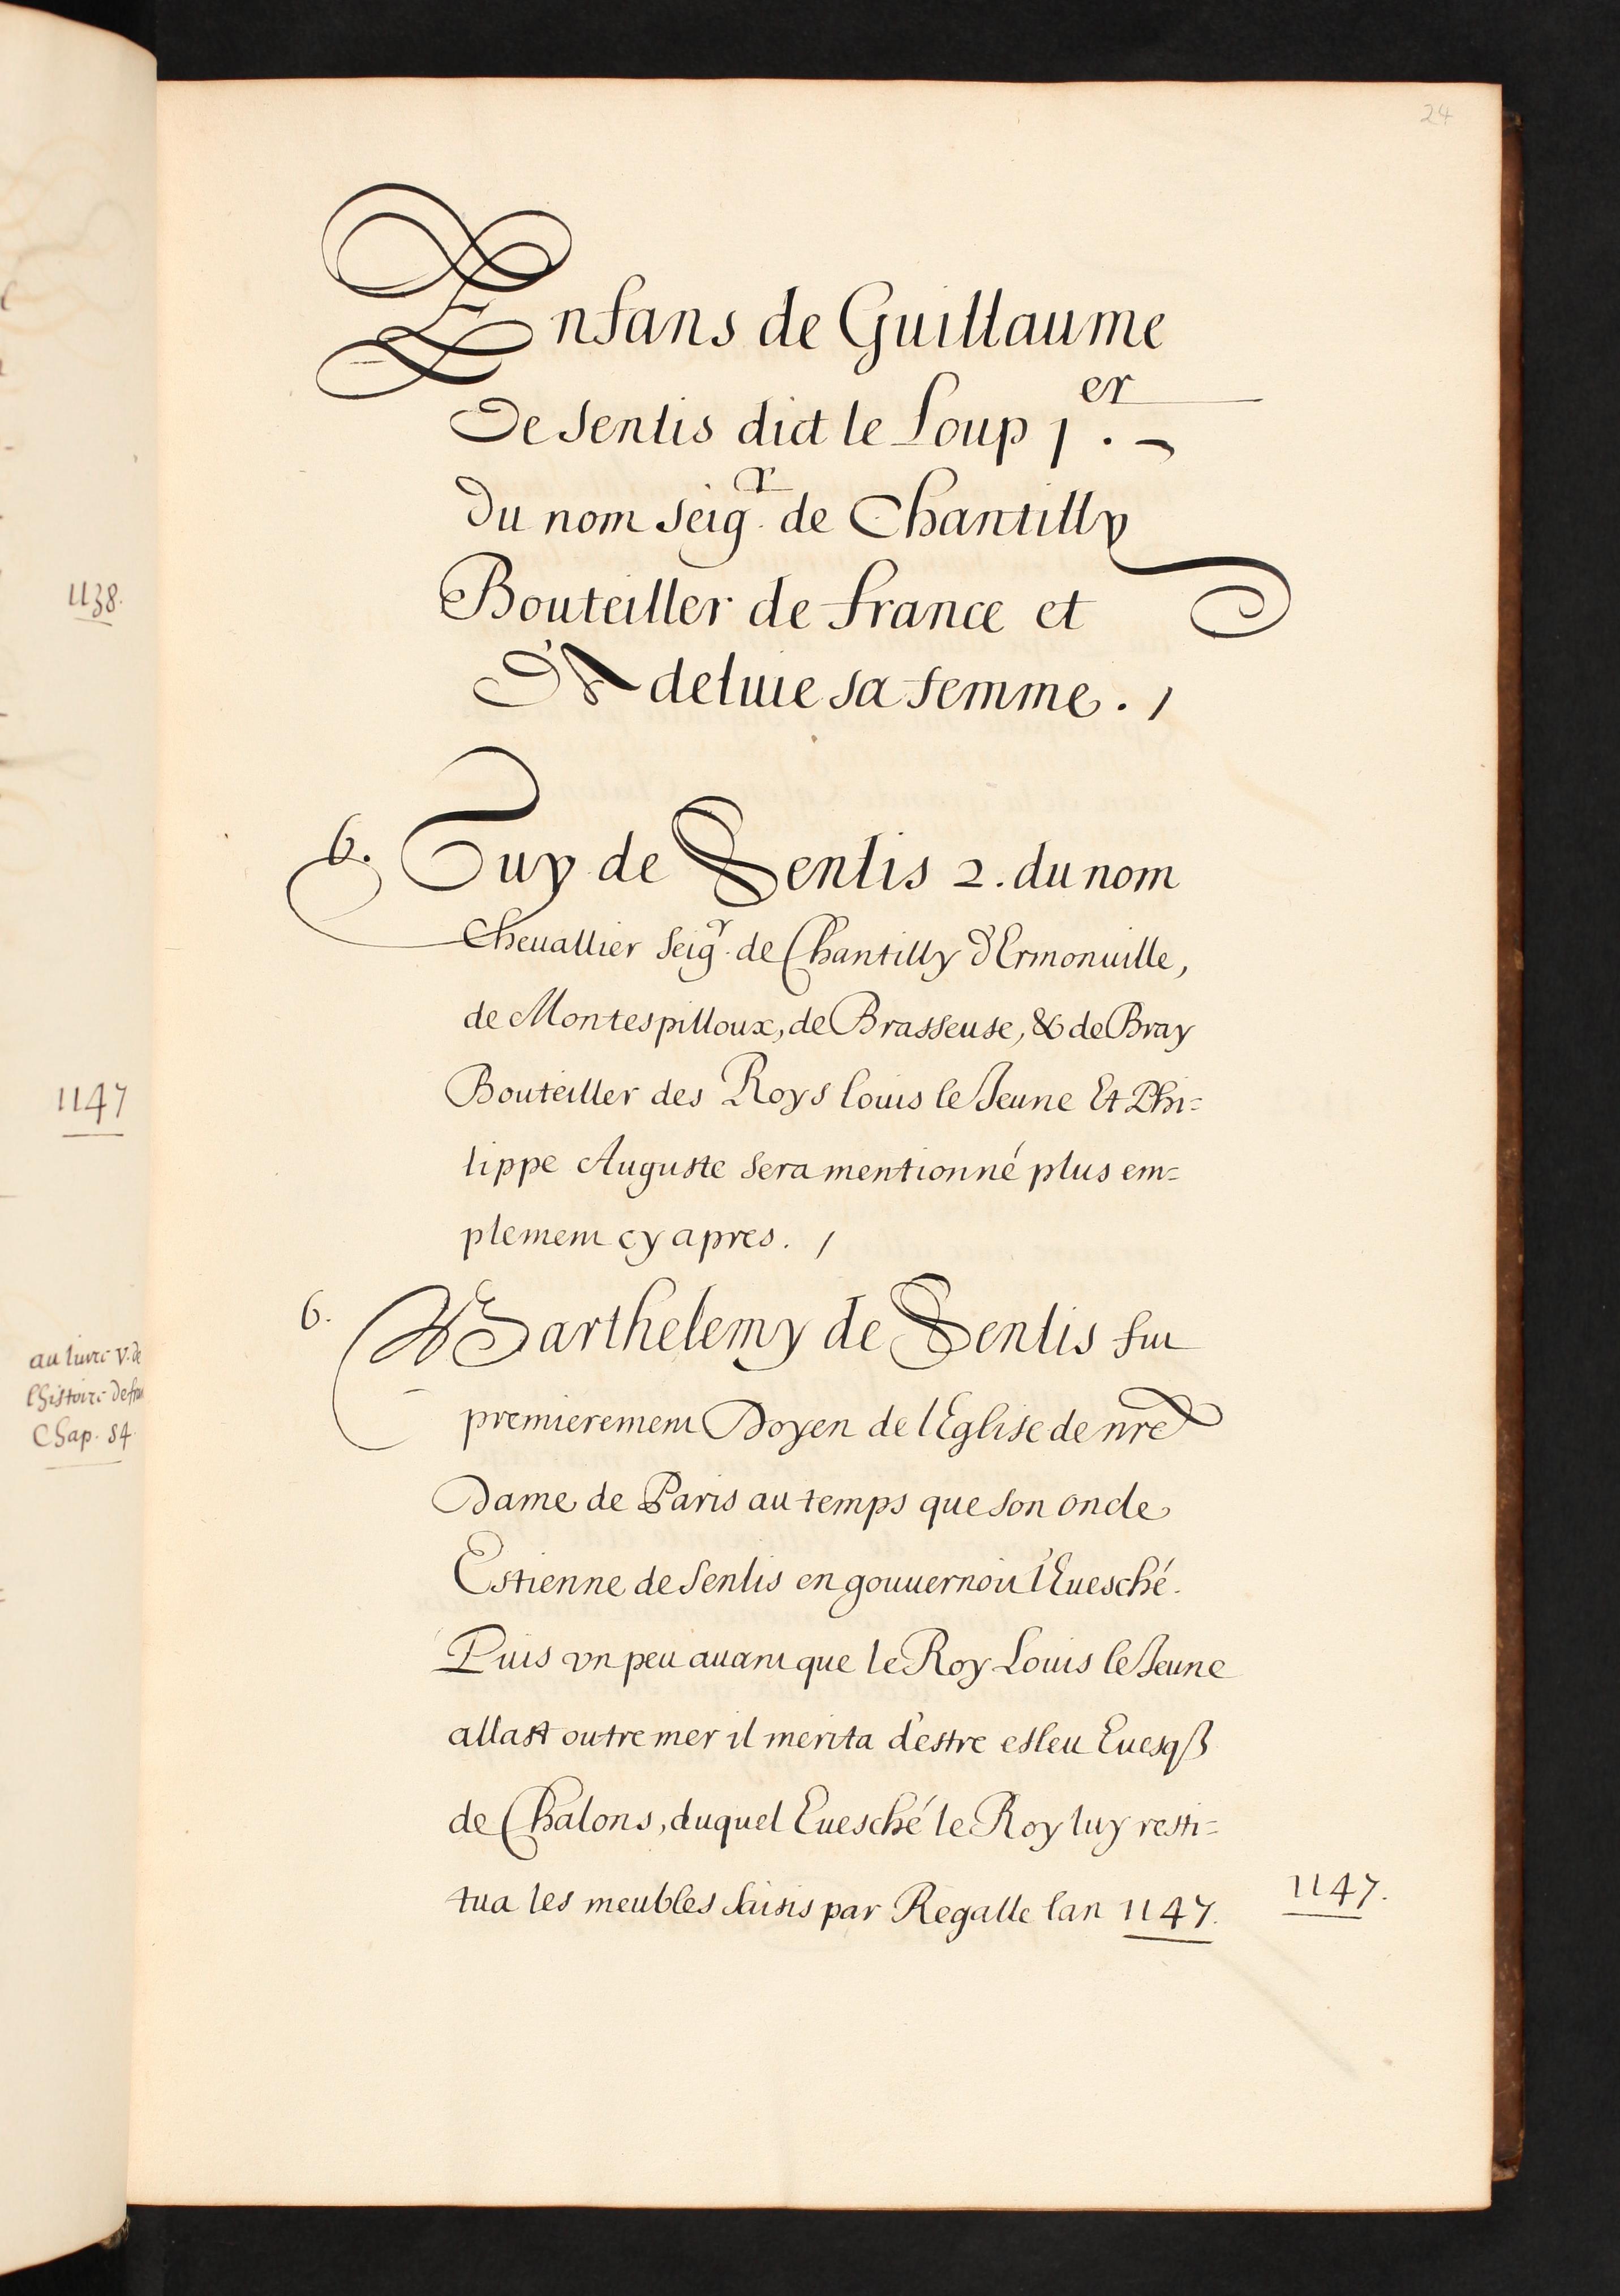 24
Enfans de Guillaume
De Senlis dict le Loup 1.er
du nom Seigr. de Chantilly
Bouteiller de france et
Adeluie sa femme. /
6. Guy de Senlis 2. du nom
Cheuallier Seigr. de Chantilly d'Ermonuille,
de Montespilloux, de Brasseuse, & de Bray
Bouteiller des Roys louis le Jeune Et Phi=
lippe Auguste sera mentionné plus em=
plement cy apres. /
6. Barthelemy de Senlis fut
premierement Doyen de l'Eglise de nre
Dame de Paris au temps que son oncle
Estienne de Senlis en gouuernoit l'Euesché.
Puis vn peu auant que le Roy Louis le Jeune
allast outre mer il merita d'estre esleu Euesqß
de Chalons, duquel Euesché le Roy luy resti=
tua les meubles saisis par Regalle lan 1147.
1147.
1138.
1147
au liure v. de
l'histoire de fran
Chap. 84.